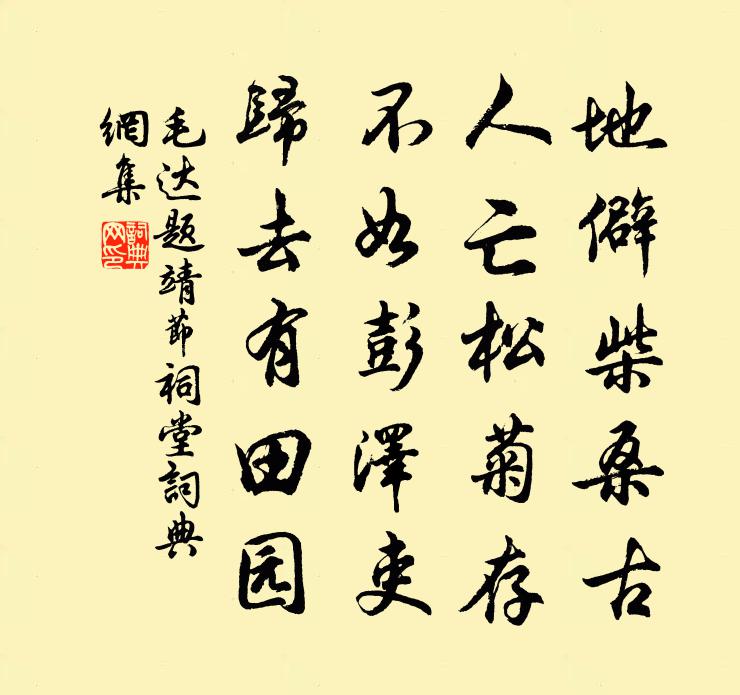 地僻柴桑古
人亡松菊存
不如彭澤吏
歸去有田园
毛达题靖节祠堂詞典
網集
詞典
网印